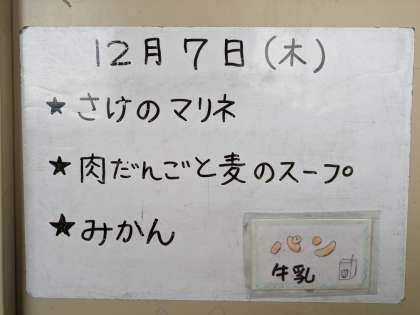 12月7日(木)
★さけのマリネ
★肉だんごと麦のスープ
★みかん
パン
牛乳